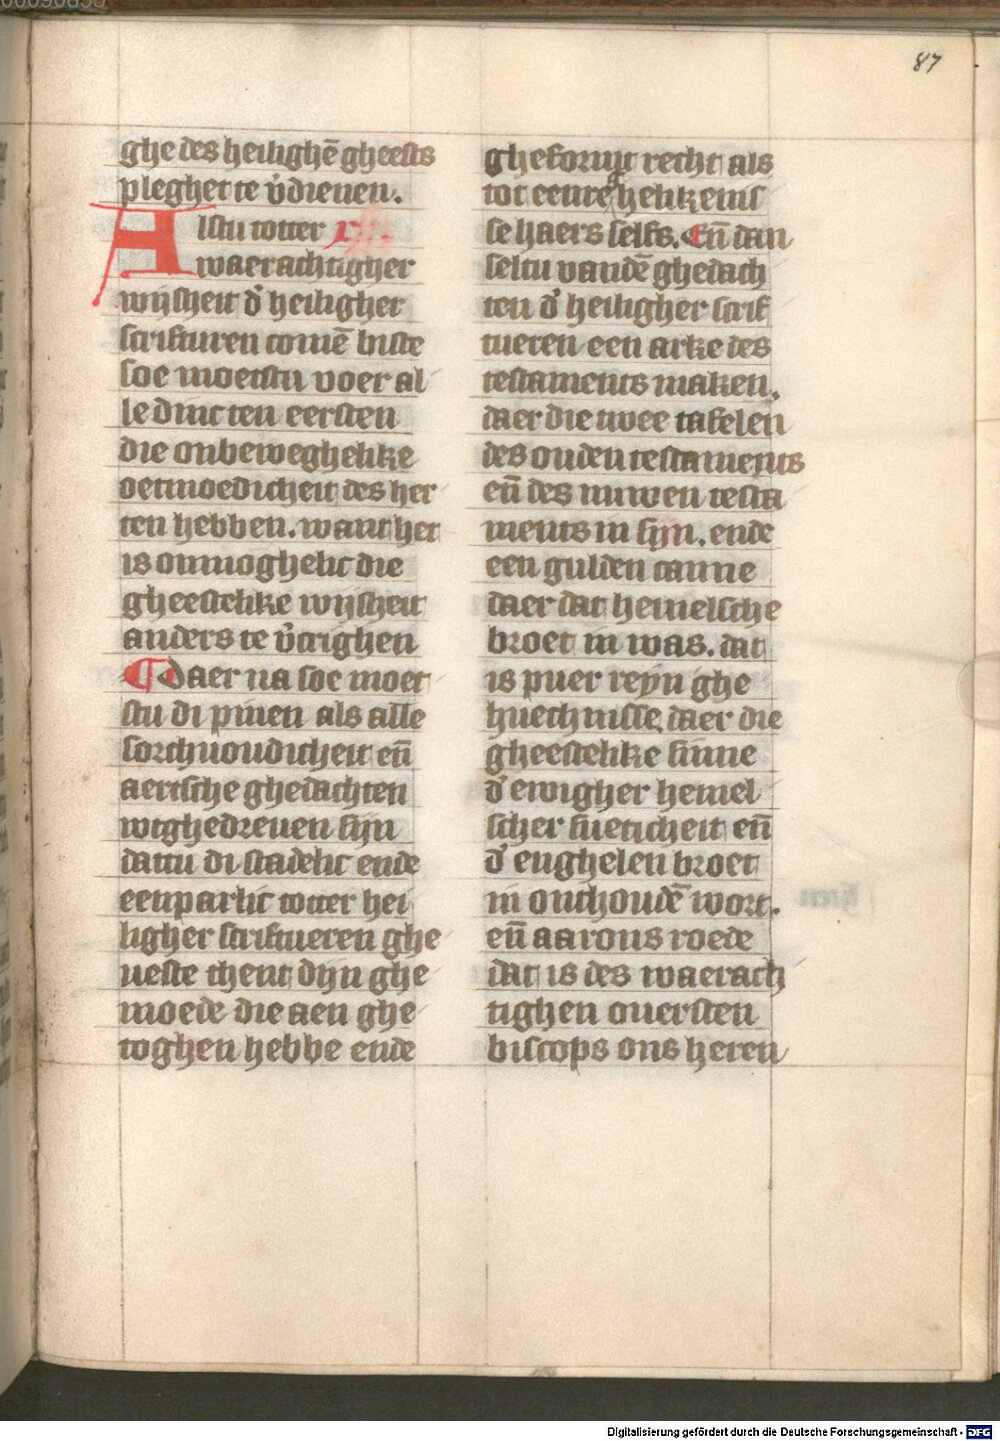 87
ghe des heilighē gheests
pleghet te v̄dienen.
Alstu totter
waerachtigher
wijsheit d' heiligher
scrifturen comē biste
soe moetstu voer al
le dinc ten eersten
die onbeweghelike
oetmoedicheit des her
ten hebben. want het
is onmoghelic die
gheestelike wijsheit
anders te v̄crighen
¶ Daer na soe moet
stu di pinen als alle
sorchuoudicheit eñ
aertsche ghedachten
wtghedreuen sijn
dattu di stadelic ende
eenparlic totter hei
ligher scriftueren ghe
ueste thent dijn ghe
moede die aen ghe
toghen hebbe ende
gheformt recht als
tot eenre ghelikenis
se haers selfs. Eñ dan
seltu vandē ghedach
ten d' heiligher scrif
tueren een arke des
testaments maken.
daer die twee tafelen
des ouden testaments
eñ des nuwen testa
ments in sijn. ende
een gulden canne
daer dat hemelsche
broet in was. dat
is puer reyn ghe
huechnisse, daer die
gheestelike sinne
d' ewigher hemel
scher sueticheit eñ
d' enghelen broet
in onthoudē wort.
eñ aarons roede
dat is des waerach
tighen ouersten
biscops ons heren
Digitalisierung gefördert durch die Deutsche Forschungsgemeinschaft - DFG